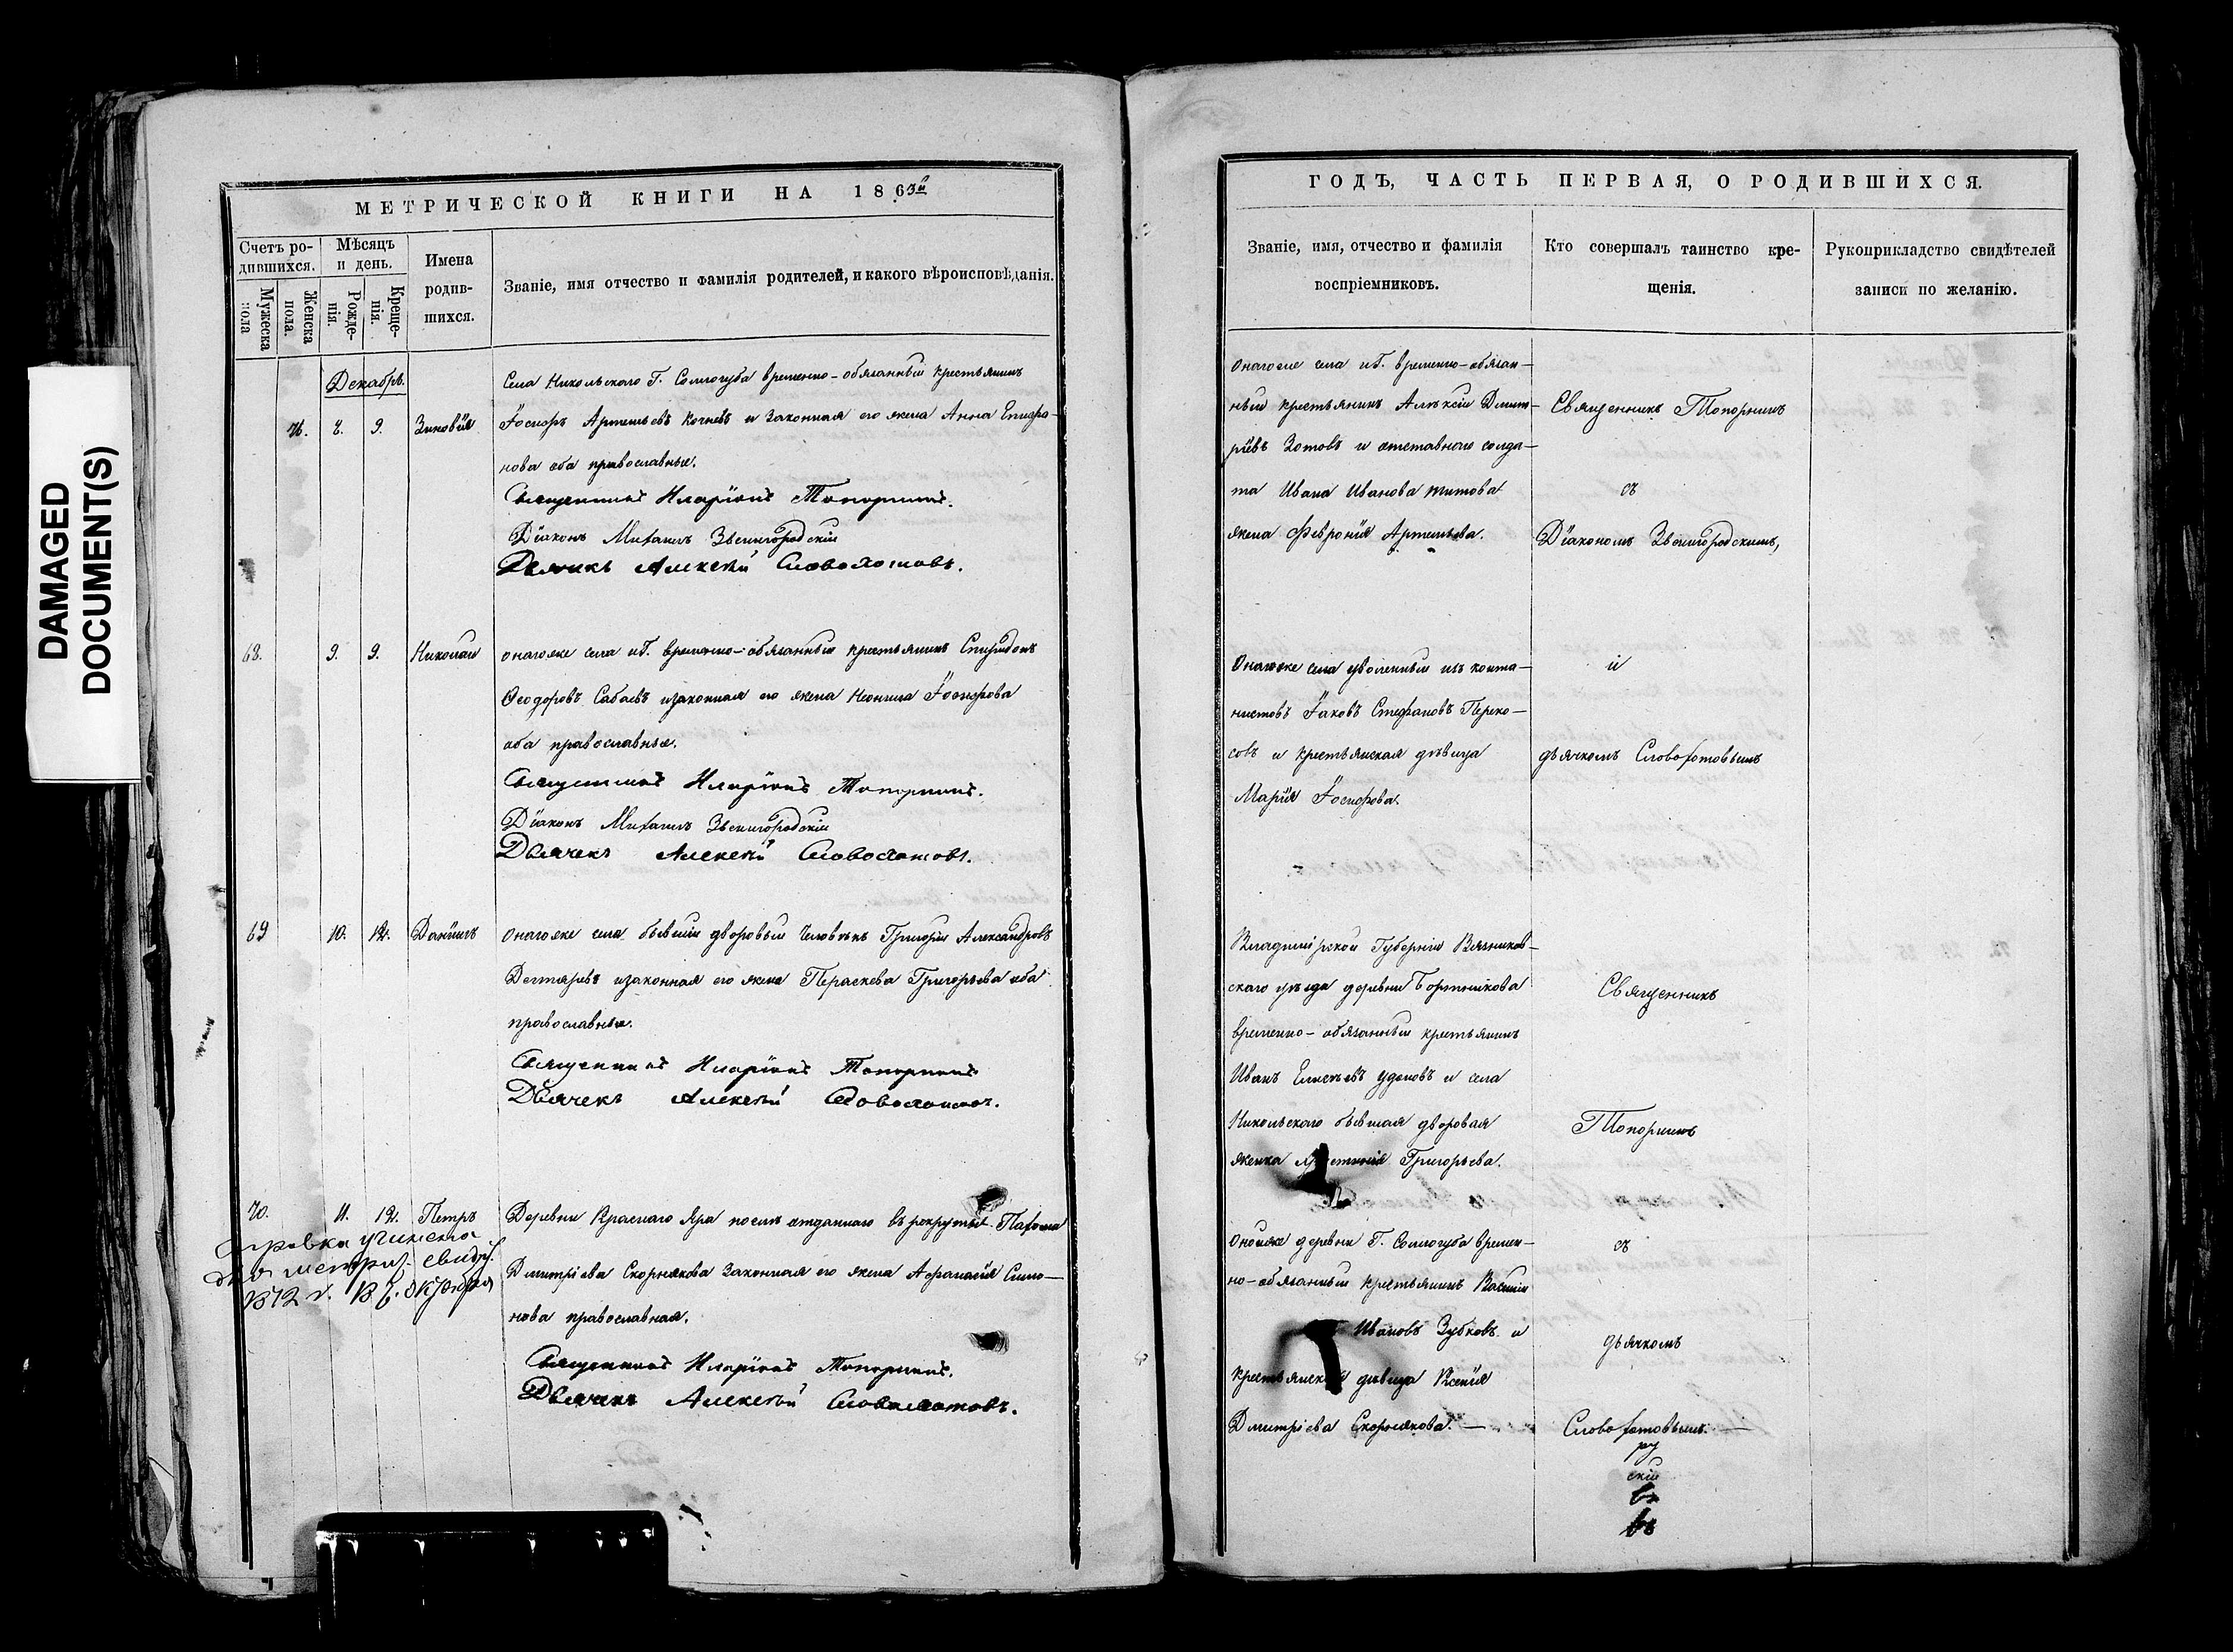 DAMAGED
DOCUMENT(S)
МЕТРИЧЕСКОЙ КНИГИ НА 1863й
Счетъ ро-
дившихся.
Мѣсяцъ
и день.
Имена
родив-
шихся.
Званіе, имя отчество и фамилія родителей, и какого вѣроисповѣданія.
Мужеска
пола
Женска
пола.
Рожде-
нія.
Креще-
нія.
Декабрь.
Села Никольскаго Г. Соллогуба временно-обязанный крестьянинъ
8. 9. Зиновія Іосифъ Артемьевъ и законная его жена Анна Епифа-
нова оба православные.
Священникъ Иларіонъ Топорнинъ.
Діаконъ Михаилъ Звенигородскій
Дьячекъ Алексѣй Словохотовъ.
68. 9. 9. Николай Онагоже села и Г. временно-обязанный крестьянинъ Спиридонъ
Ѳеодоровъ Сабаевъ и законная его жена Неонила Іосифова
оба православные.
Священникъ Иларіонъ Топорнинъ.
Діаконъ Михаилъ Звенигородскій
Дьячекъ Алексѣй Словохотовъ.
69 10. 12. Даніилъ Онагоже села бывшій дворовый человѣкъ Григорій Александровъ
Дегтяревъ и законная его жена Параскева Григорьева оба
православные.
Священникъ Иларіонъ Топорнинъ
Дьячекъ Алексѣй Словохотовъ.
70. 11. 12. Петръ Деревни Краснаго Яра послѣ отданнаго въ рекруты Пахома
Димитріева Скорнякова законная его жена Афанасія Симо-
нова православная.
справка учинена
для метрич. свидѣт.
1872 г. октября
Священникъ Иларіонъ Топорнинъ.
Дьячекъ Алексѣй Словохотовъ.
ГОДЪ, ЧАСТЬ ПЕРВАЯ, О РОДИВШИХСЯ.
Званіе, имя, отчество и фамилія
воспріемниковъ.
Кто совершалъ таинство кре-
щенія.
Рукоприкладство свидѣтелей
записи по желанію.
Онагоже села и Г. временно-обязан-
ный крестьянинъ Алексій Димит-
ріевъ Зотовъ и отставнаго солда-
та Ивана Иванова Титова
жена Февронія Артемьева.
Священникъ Топорнинъ
съ
Діакономъ Звенигородскимъ,
Онагоже села уволенный изъ канто-
нистовъ Іаковъ Стефановъ Переко-
совъ и крестьянская дѣвица
Марія Іосифова.
и
дьячкомъ Словохотовымъ
Владимірской Губерніи Вязников-
скаго уѣзда деревни Бортникова
временно-обязанный крестьянинъ
Иванъ Елисеевъ Удаловъ и села
Никольскаго бывшая дворовая
женка Григорьева.
Священникъ
Топорнинъ
Оноже деревни Г. Соллогуба времен-
но-обязанный крестьянинъ Василій
Ивановъ Зубковъ и
крестьянская дѣвица Ксенія
Димитріева Скорнякова. —
съ
дьячкомъ
Словохотовымъ. —
ру
скій
въ
въ